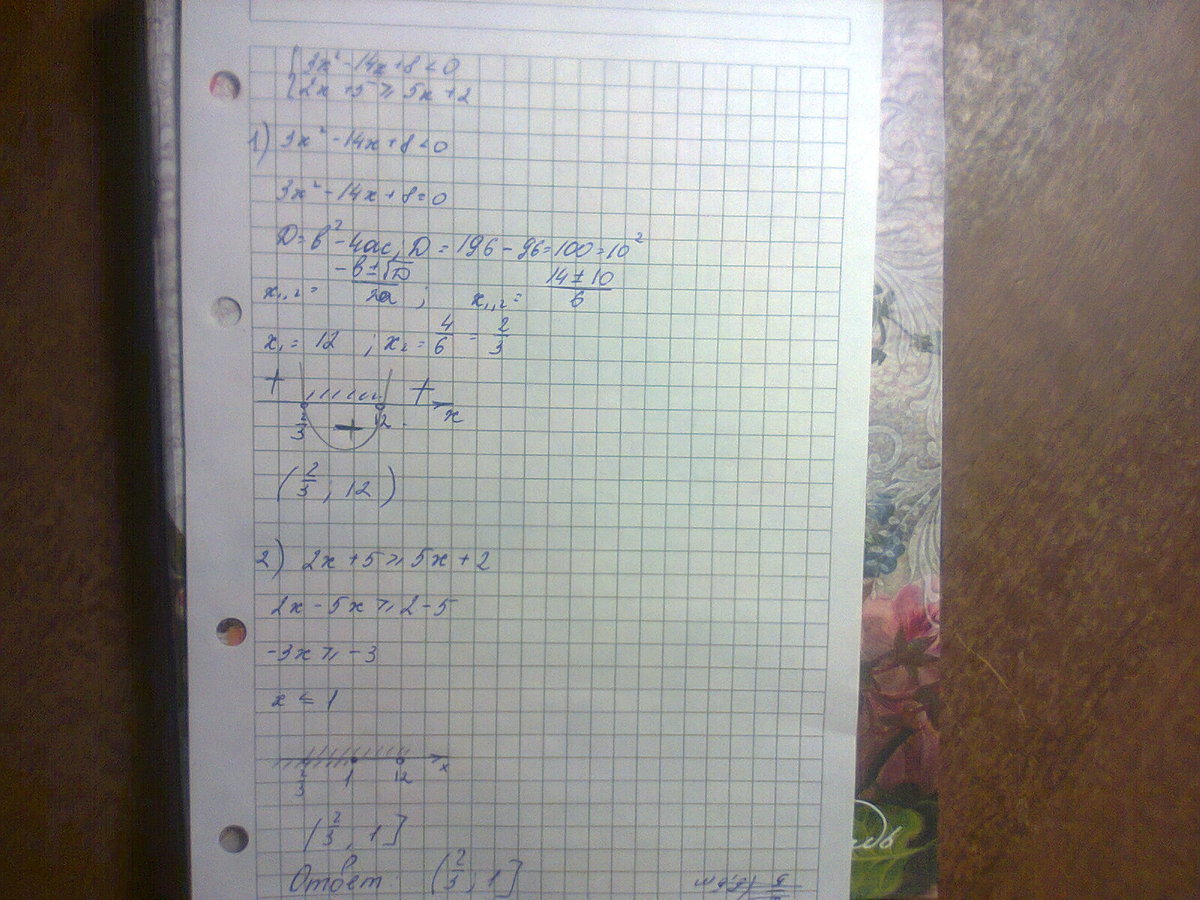 { 3x² - 14x + 8 < 0
{ 2x + 5 ⩾ 5x + 2
1) 3x² - 14x + 8 < 0
3x² - 14x + 8 = 0
D = b² - 4ac; D = 196 - 96 = 100 = 10²
x₁,₂ = (-b ± √D)/2a ; x₁,₂ = (14 ± 10)/6
x₁ = 12 ; x₂ = 4/6 = 2/3
+ +
2/3 12 x
(2/3 ; 12)
2) 2x + 5 ⩾ 5x + 2
2x - 5x ⩾ 2 - 5
-3x ⩾ -3
x ⩽ 1
2/3 1 12 x
(2/3 ; 1]
Ответ: (2/3 ; 1]